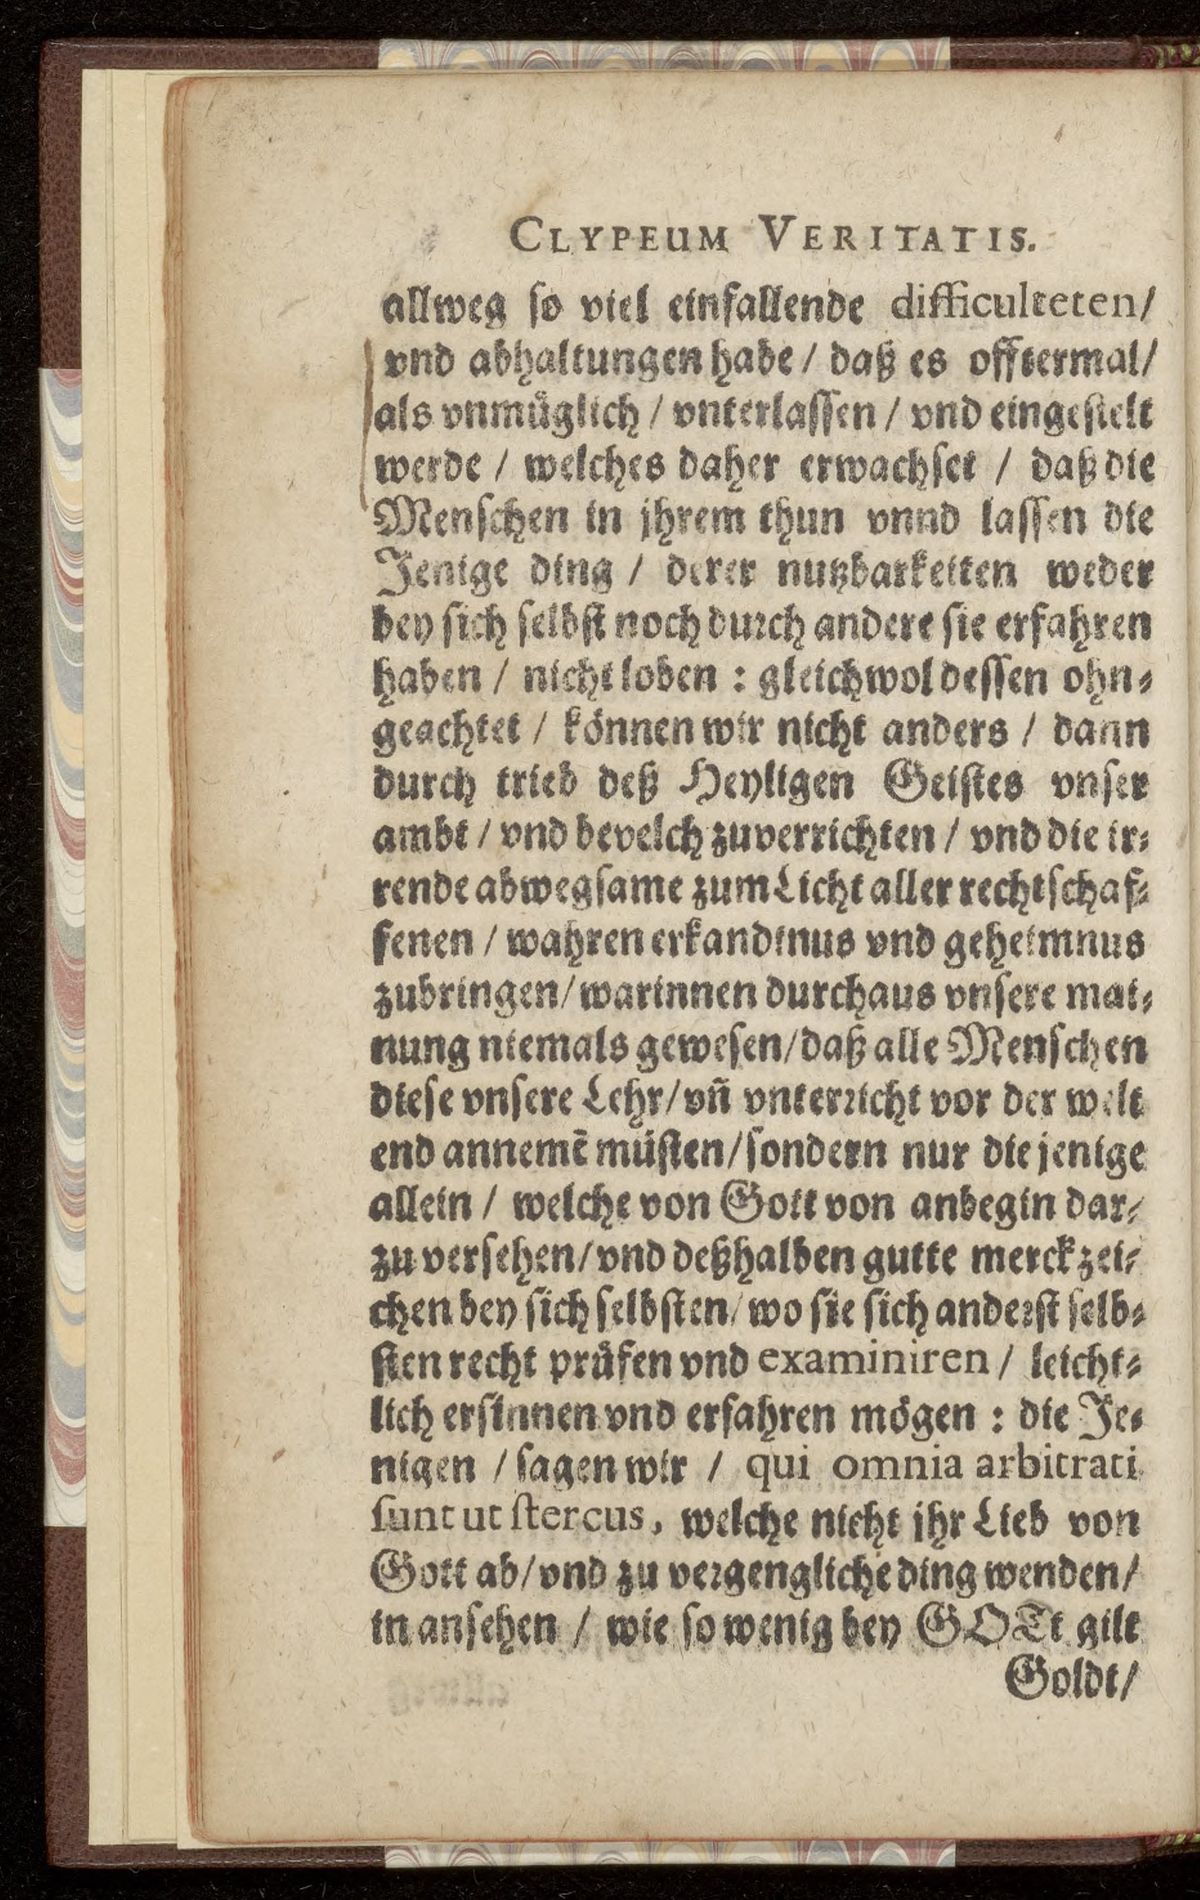 CLYPEUM VERITATIS.
allweg so viel einfallende difficulteten/
vnd abhaltungen habe / daß es offtermal/
als vnmüglich / vnterlassen / vnd eingestelt
werde / welches daher erwachset / daß die
Menschen in jhrem thun vnnd lassen die
Jenige ding / derer nutzbarkeiten weder
bey sich selbst noch durch andere sie erfahren
haben / nicht loben : gleichwol dessen ohn-
geachtet / können wir nicht anders / dann
durch trieb deß Heyligen Geistes vnser
ambt / vnd bevelch zuverrichten / vnd die ir-
rende abwegsame zum Licht aller rechtschaf-
fenen / wahren erkandtnus vnd geheimnus
zubringen/ warinnen durchaus vnsere mai-
nung niemals gewesen/daß alle Menschen
diese vnsere Lehr/vñ vnterricht vor der welt
end annemẽ müsten/sondern nur die jenige
allein / welche von Gott von anbegin dar-
zu versehen/vnd deßhalben gutte merckzei-
chen bey sich selbsten/ wo sie sich anderst selb-
sten recht prüfen vnd examiniren / leicht-
lich ersinnen vnd erfahren mögen : die Je-
nigen / sagen wir / qui omnia arbitrati
sunt ut stercus, welche nicht jhr Lieb von
Gott ab/vnd zu vergengliche ding wenden/
in ansehen / wie so wenig bey GOTt gilt
Goldt/